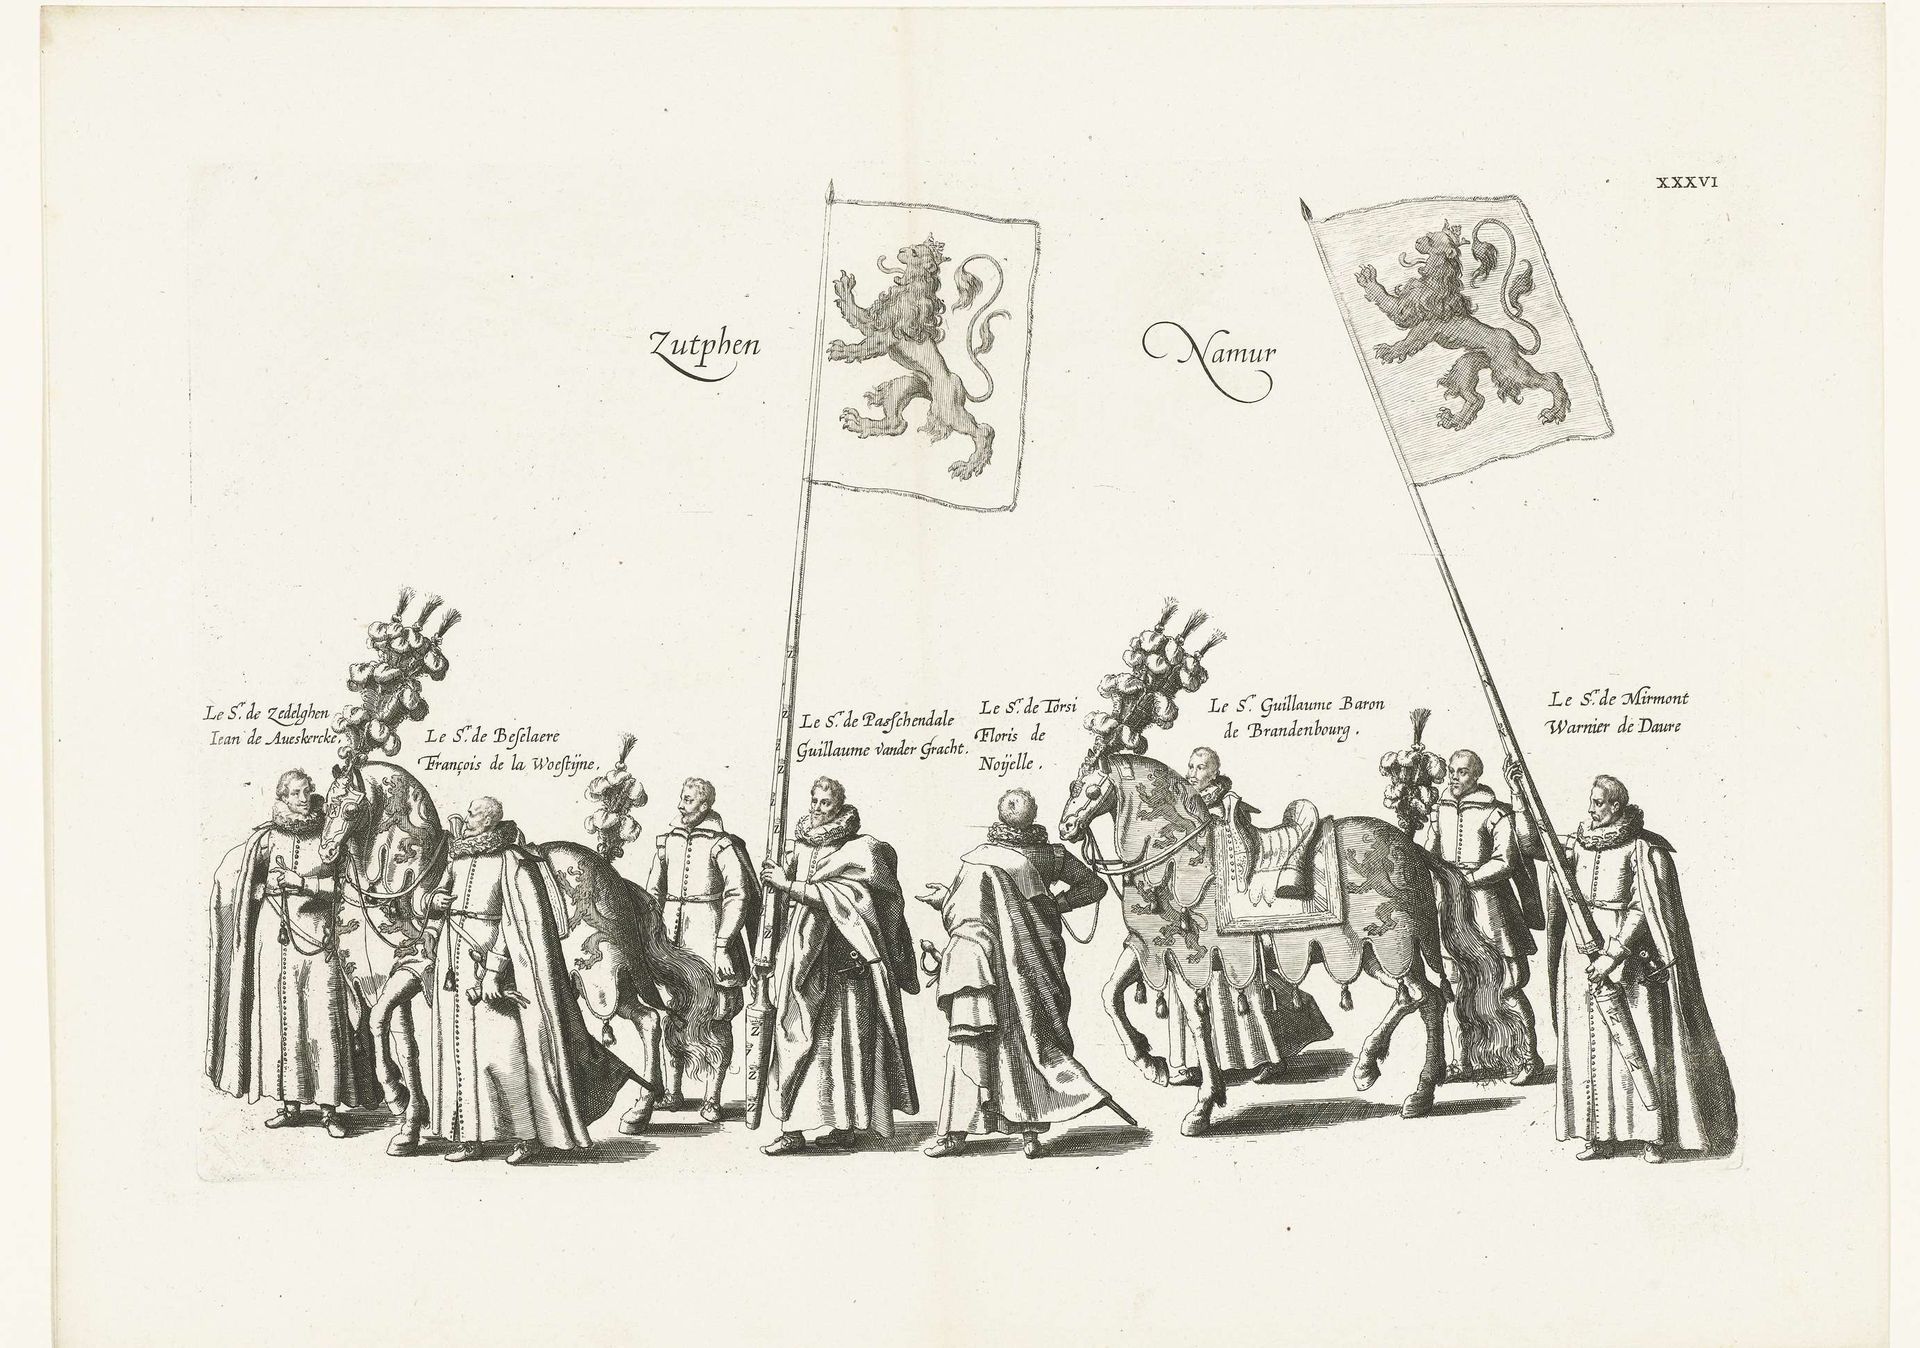 XXXVI
Zutphen
Namur
Le Sr. de Zedelghen
Iean de Aueskercke.
Le Sr. de Beſelaere
François de la Woeſtÿne.
Le Sr. de Paſſchendale
Guillaume vander Gracht.
Le Sr. de Torsi
Floris de
Noÿelle.
Le Sr. Guillaume Baron
de Brandenbourg.
Le Sr. de Mirmont
Warnier de Daure
Z
Z
Z
Z
Z
Z
Z
Z
Z
N
N
N